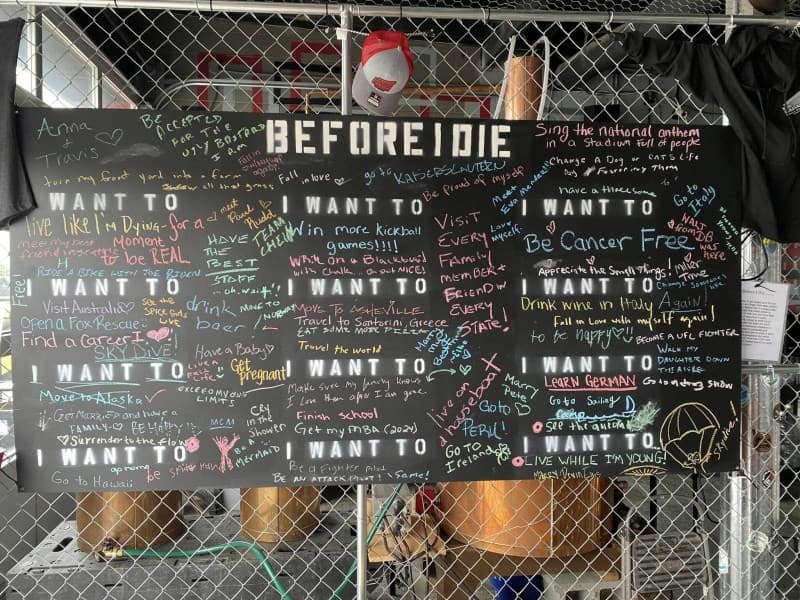 BEFORE I DIE
Anna
+
Travis
BE
ACCEPTED
FOR THE
UGLY BASTARD
I AM
turn my front yard into a farm
I WANT TO
live like I'm Dying - for a
Moment
to be REAL
meet my best
friend
meet
Paul
Rudd
HAVE
THE
BEST
STAFF
TEAM
CHEIN
RIDE A BIKE WITH JOE BIDEN
I WANT TO
Free
Visit Australia
See the
SPICE Girls
LIVE
Open a Fox Rescue
Find a Career!
SKY DIVE
drink
beer!
MOVE TO
NORWAY
I WANT TO
LIVE A
FULL
LIFE
Have a Baby
Get
pregnant
Move to Alaska
EXCEED MY OWN
LIMITS
GET MARRIED and have a
FAMILY
BE Happy
MCM
Surrender to the flow
CRY
IN THE
Shower
Be A
Mermaid
I WANT TO
go home
Go to Hawaii
Fall in love
go to
KAISERSLAUTERN
I WANT TO
Be proud of myself
Win more kickball
games!!!!
Write on a Blackboard
with chalk... oh out NICE!
I WANT TO
MOVE TO ASHEVILLE
Travel to Santorini, Greece
EAT SOME MORE PIZZA
Travel the world
I WANT TO
Make sure my family knows
I love them after I am gone
Finish school
Get my MBA (2024)
I WANT TO
Be a fighter pilot
BE AN ATTACKMENT!
Same!
VISIT
EVERY
Family
MEMBER +
FRIEND IN
EVERY
STATE!
Marry
my
Best
friend
live on
a
housebox
Marry
Pete
Go to
PERU!
GO TO
Ireland
Sing the national anthem
in a stadium full of people
Change A Dog or CATS Life
by Fostering Them
Meet
Eva Mendez
Love
Myself
have a threesome
I WANT TO
Go to
Italy
Be Cancer Free
WALT
from DB
was
here
Appreciate the Small Things!
I WANT TO
Change Someone's
LIFE
Drink wine in Italy
Again!
Fall in Love with myself again!
to be happy
BECOME A UFC FIGHTER
I WANT TO
WALK MY
DAUGHTER DOWN
THE AISLE
LEARN GERMAN
Go to a drag show
Go to Sailing
Camp
See the aurora
I WANT TO
SKYDIVE!
LIVE WHILE I'M YOUNG!